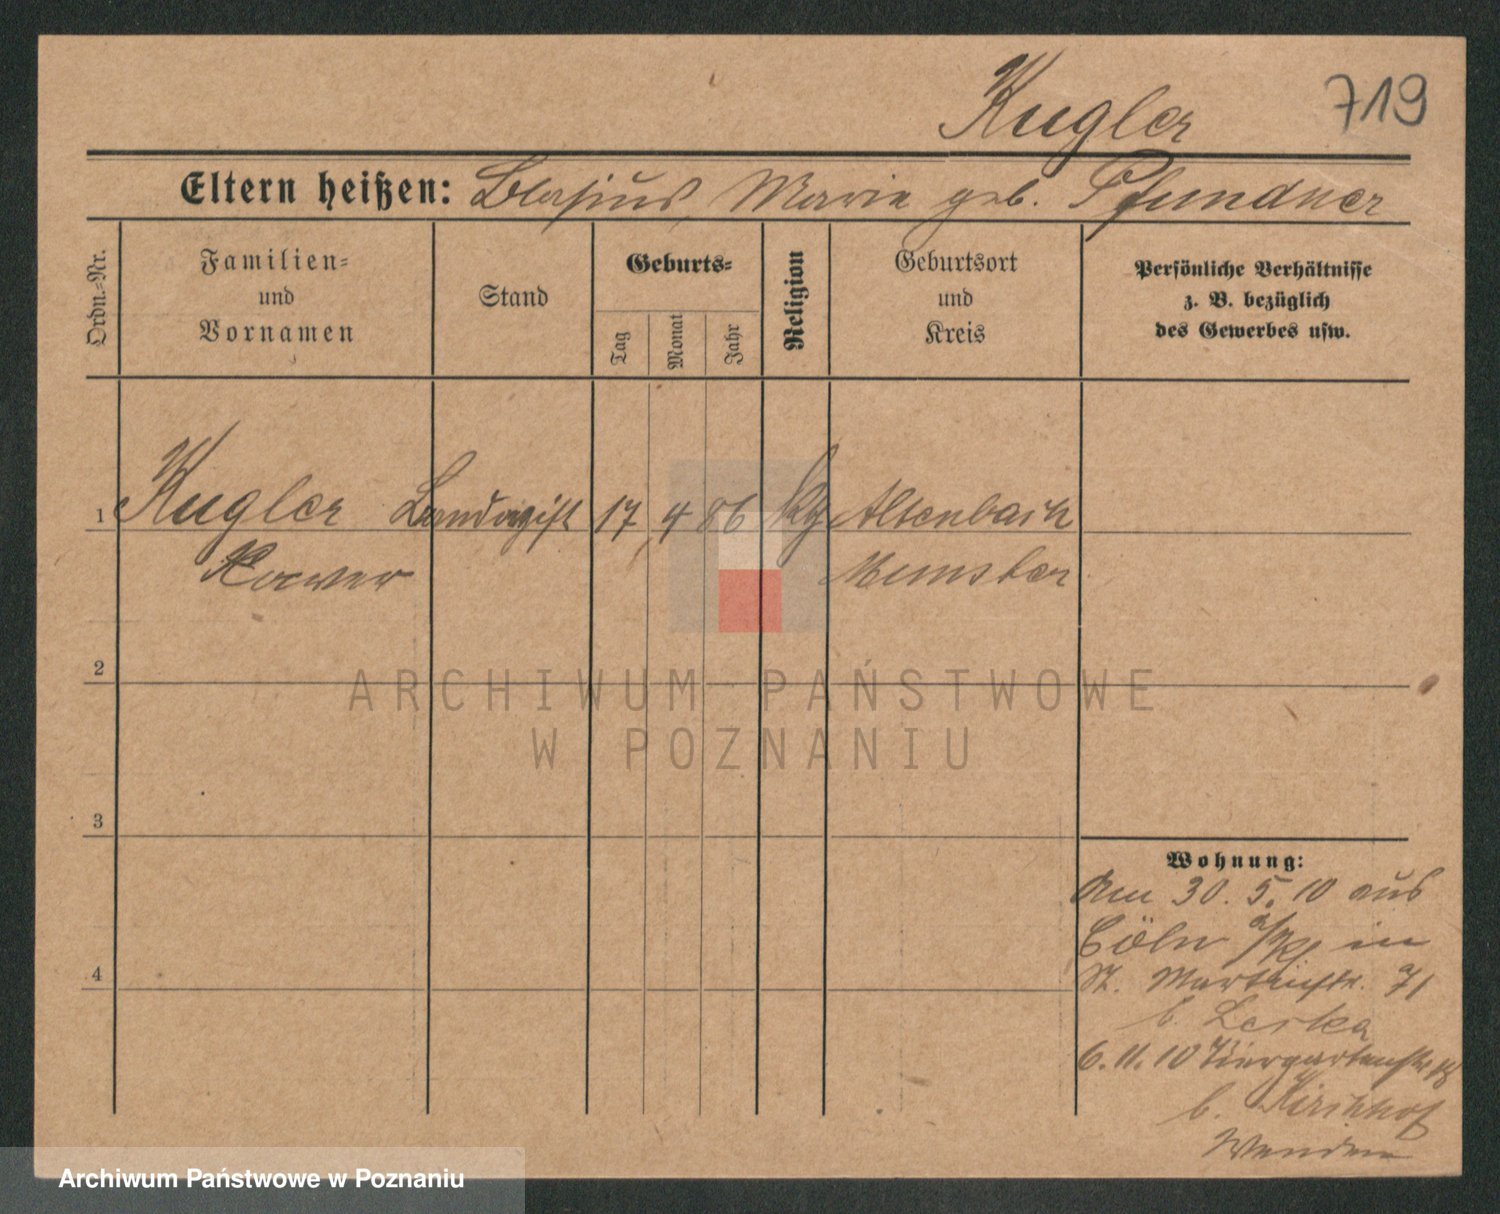 Kugler 719
Eltern heißen: Blasius, Marie geb. Pfundner
Ordn.-Nr.
Familien-
und
Vornamen
Stand
Geburts-
Tag
Monat
Jahr
Religion
Geburtsort
und
Kreis
Persönliche Verhältnisse
z. B. bezüglich
des Gewerbes usw.
1 Kugler 17 4 86 Altenbach
Münster
2
3
4
ARCHIWUM PAŃSTWOWE
W POZNANIU
Wohnung:
Am 30. 5. 10 aus
Cöln a/Rh in
St. Martinstr. 71
b. Leska
6. 11. 10 Tiergartenstr.
b. Kirchhof
Archiwum Państwowe w Poznaniu